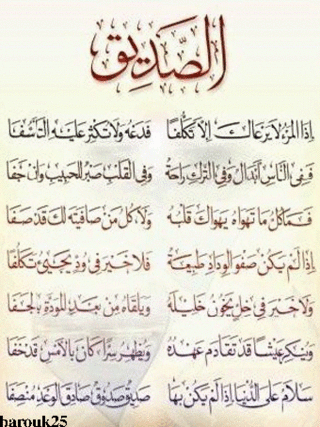 الصَّدِيق
إِذَا المَرْءُ لَا يَرْعَاكَ إِلَّا تَكَلُّفًا فَدَعْهُ وَلَا تُكْثِرْ عَلَيْهِ التَّأَسُّفَا
فَفِي النَّاسِ أَبْدَالٌ وَفِي التَّرْكِ رَاحَةٌ وَفِي القَلْبِ صَبْرٌ لِلْحَبِيبِ وَإِنْ جَفَا
فَمَا كُلُّ مَا تَهْوَاهُ يَهْوَاكَ قَلْبُهُ وَلَا كُلُّ مَنْ صَافَيْتَهُ لَكَ قَدْ صَفَا
إِذَا لَمْ يَكُنْ صَفْوُ الوِدَادِ طَبِيعَةً فَلَا خَيْرَ فِي وُدٍّ يَجِيءُ تَكَلُّفًا
وَلَا خَيْرَ فِي خِلٍّ يَخُونُ خَلِيلَهُ وَيَلْقَاهُ مِنْ بَعْدِ المَوَدَّةِ بِالجَفَا
وَيُنْكِرُ عَيْشًا قَدْ تَقَادَمَ عَهْدُهُ وَيُظْهِرُ سِرًّا كَانَ بِالأَمْسِ قَدْ خَفَا
سَلَامٌ عَلَى الدُّنْيَا إِذَا لَمْ يَكُنْ بِهَا صَدِيقٌ صَدُوقٌ صَادِقُ الوَعْدِ مُنْصِفَا
barouk25